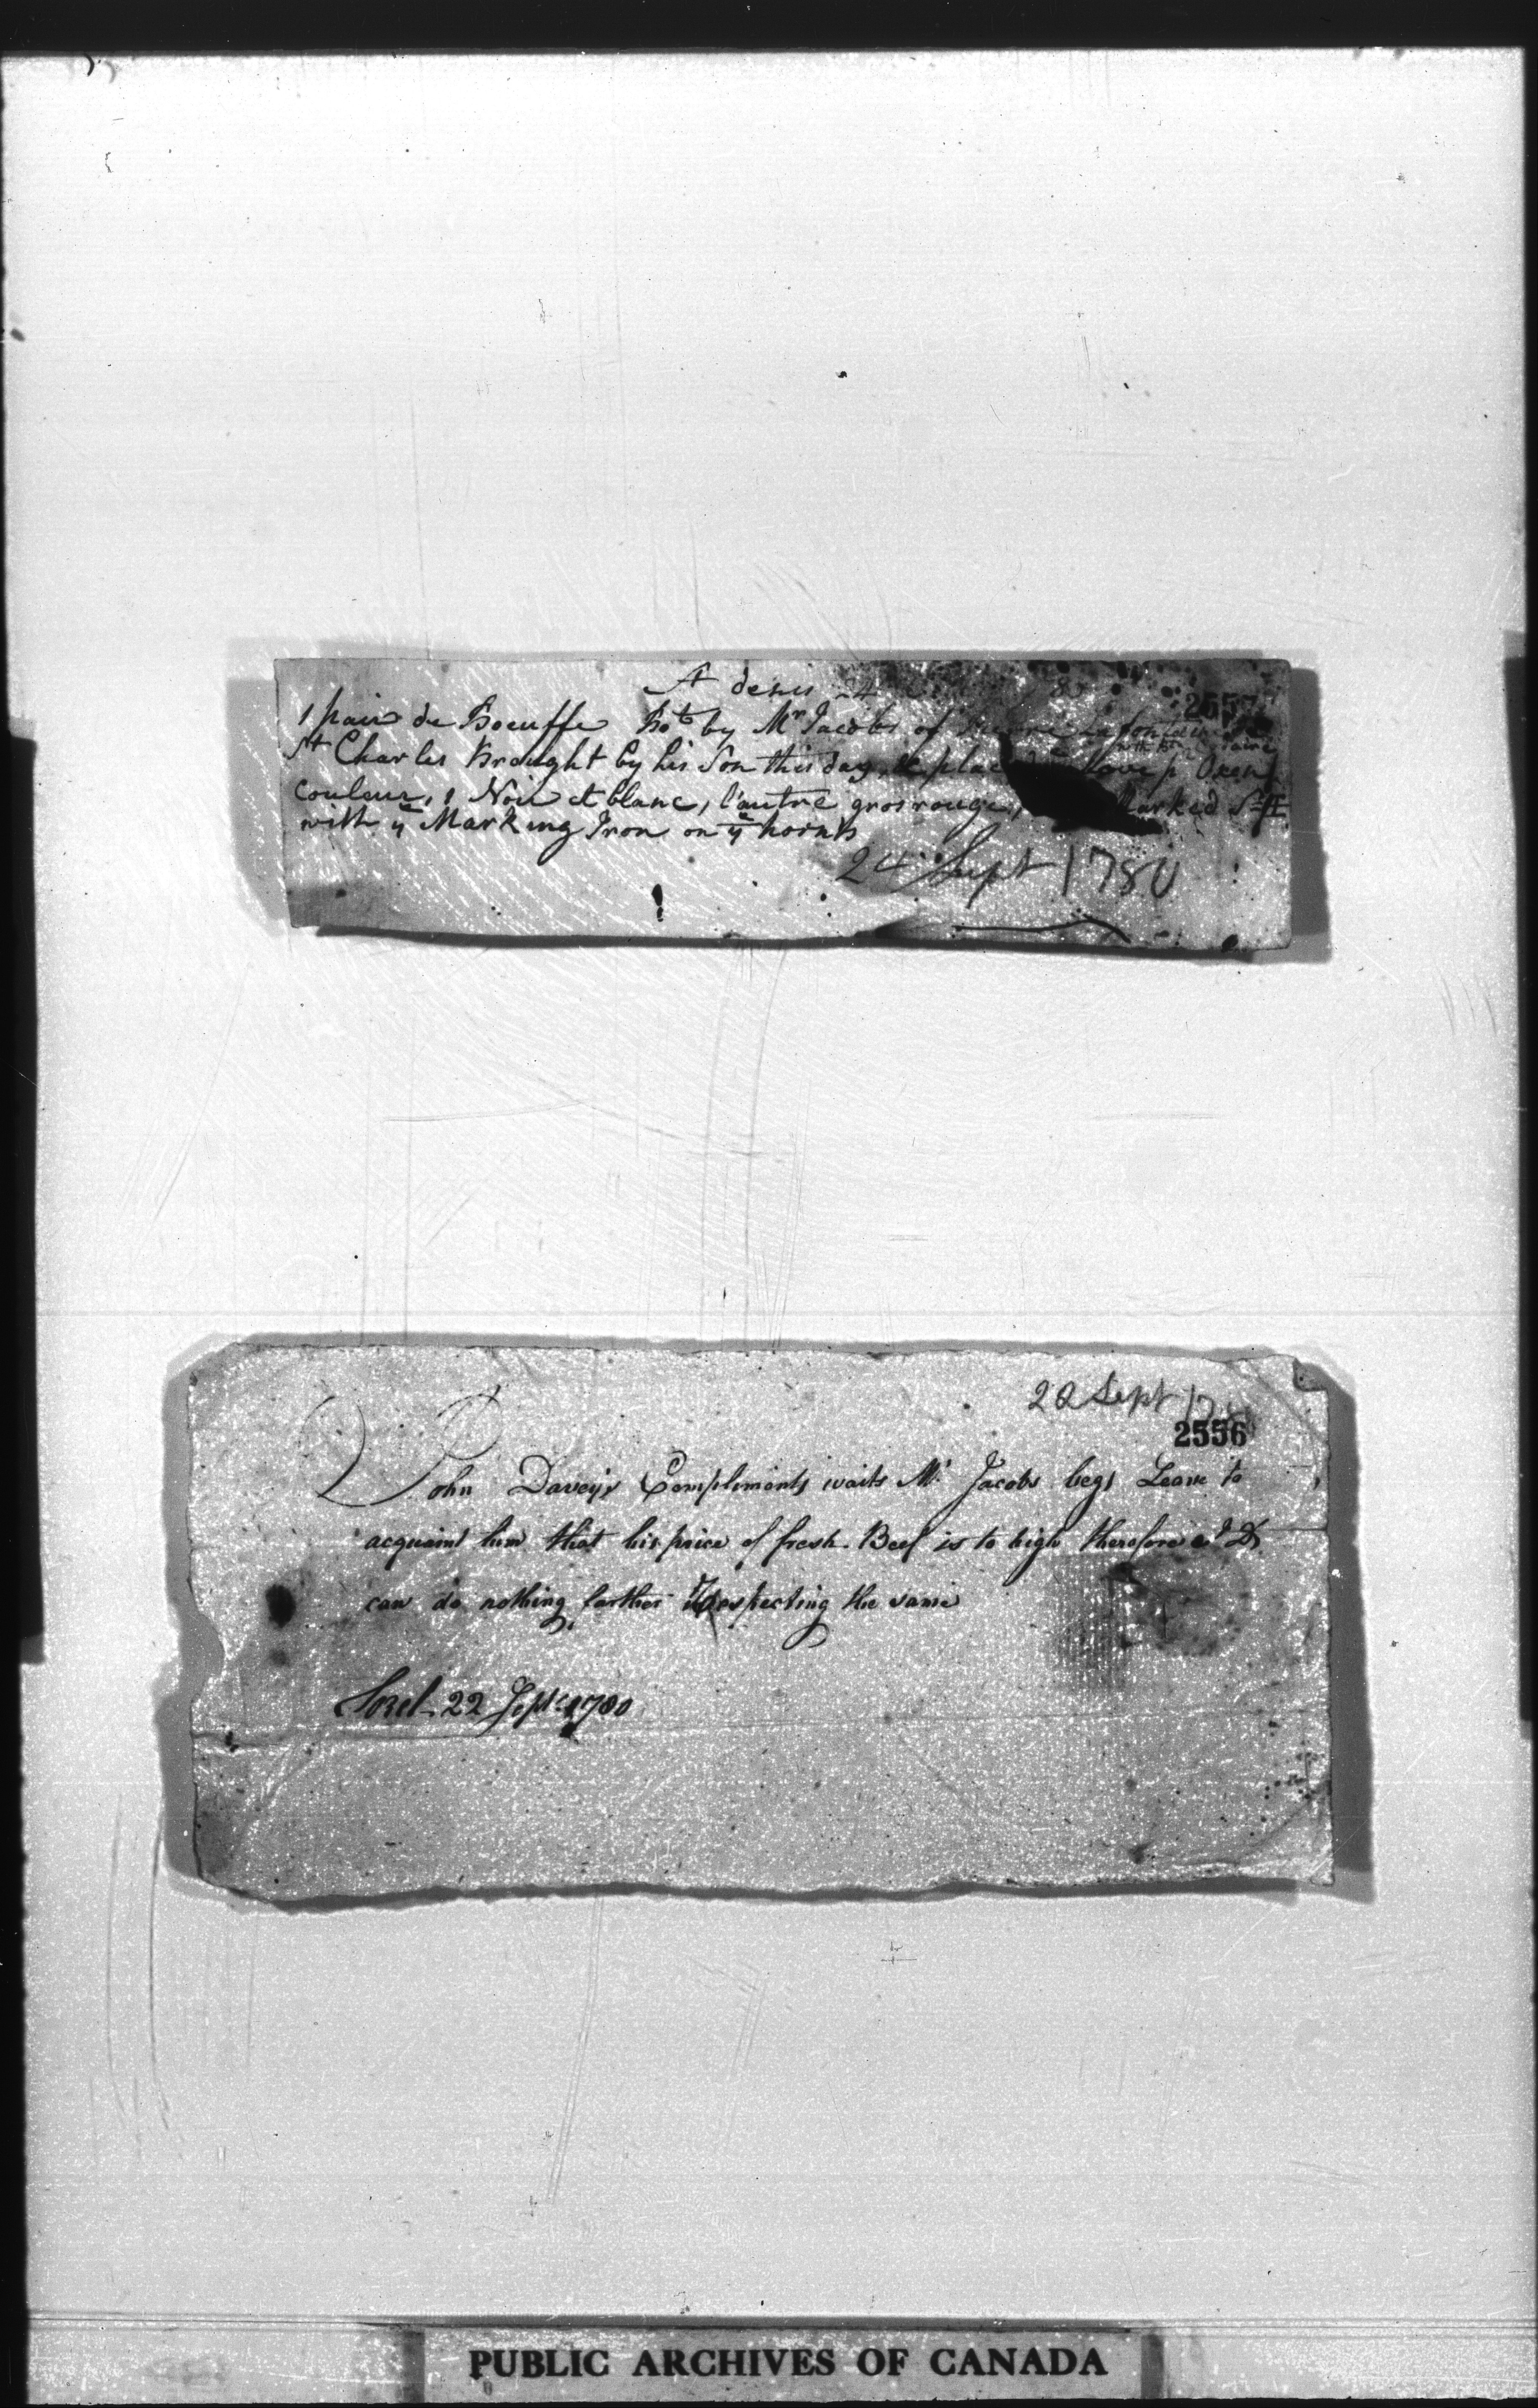 St denis 24
2557
1 pair de Boeuffe Bot by Mr Jacobs of Pierre Lafontaine
St Charles Brought by his Son this day, Oxen
couleur, 1 Noir et blanc, l'autre gros rouge, Marked
with ye Marking Iron on ye horns
24 Sept 1780
22 Sept 178
2556
John Davey's Compliments waits Mr Jacobs begs Leave to
acquaint him that his price of fresh Beef is to high therefore JD
can do nothing farther respecting the same
Sorel 22 Sept 1780
PUBLIC ARCHIVES OF CANADA